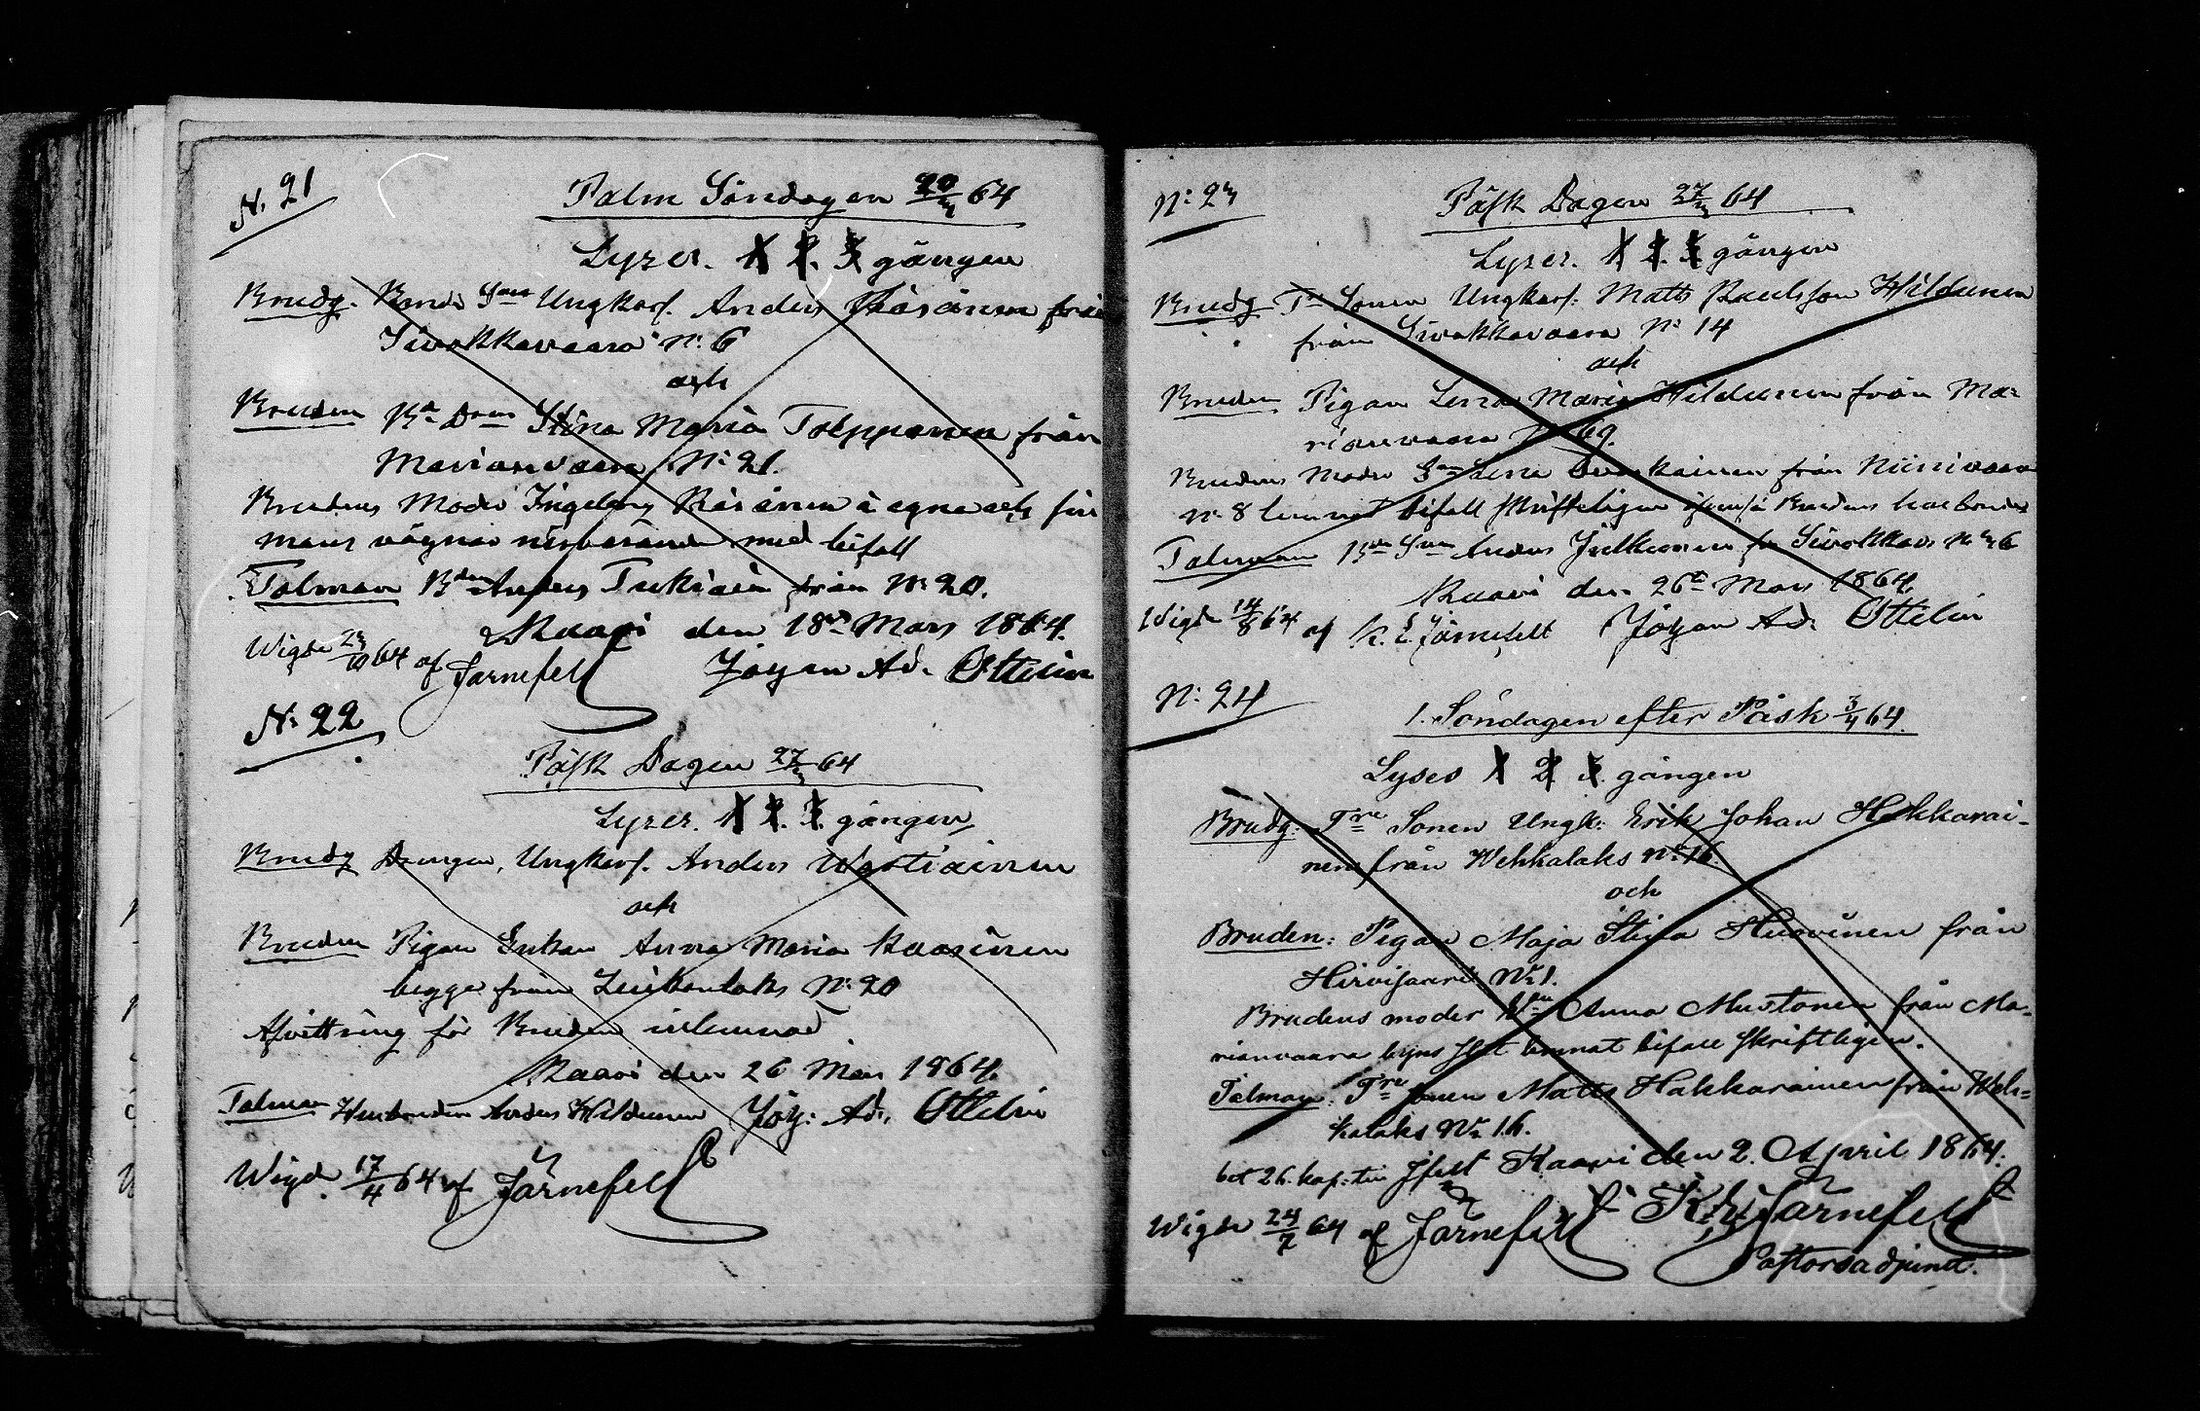 N. 21
Palm Söndagen 20/3 64
Lyses. 1 2. 3 gången
Brudg. Bonde Sonen Ungkarl. Anders Räsänen från
Sivakkavaara N: 6
och
Bruden Bde Dren Stina Maria Tolppanen från
Marianvaara N: 21.
Brudens Moder Ingeborg Räsänen å egna och sin
mans vägnar närvarande med bifall
Talman Bden Anders Tukiain från N: 20.
Kaavi den 18de Mars 1864.
Wigde 23/10 64 af Järnefelt Johan Ad. Ottelin
N: 22
Påsk Dagen 27/3 64
Lyses. 1 2. 3. gången
Brudg Drengen, Ungkarl. Anders Wartiainen
och
Bruden Pigan Enkan Anna Maria Kaasinen
begge från Luikonlaks N: 20
Afvittring för Bruden inlemnad
Kaavi den 26 Mars 1864.
Talman Husbonden Anders Hildunen Joh: Ad. Ottelin
Wigd. 17/4 64 af Järnefelt
N: 23
Påsk Dagen 27/3 64
Lyses. 1 2. 3. gången
Brudg Tre Sonen Ungkarl: Matts Paulsson Hildunen
från Sivakkavaara N: 14
och
Bruden Pigan Lena Maria Hildunen från Ma=
rianvaara N: 69.
Brudens Moder Lena från Niinivaara
N: 8 lemnat bifall skrifteligen Brudens
Talman Bde Son Anders Julkunen fr Sivakkav N: 36
Kaavi den 26de Mars 1864
Wigde 14/8 64 af K. E. Järnefelt Johan Ad. Ottelin
N: 24
1. Söndagen efter Påsk 3/4 64.
Lyses 1 2 3. gången
Brudg: Tre Sonen Ungk: Erik Johan Hakkarai-
nen från Wehkalaks N: 16.
och
Bruden: Pigan Maja Stina Huovinen från
Hirvisaari N: 1.
Brudens moder Anna Mustonen från Ma=
rianvaara byns lemnat bifall skriftligen.
Talman: Tre Sonen Matts Hakkarainen från Weh=
kalaks N: 16.
Kaavi den 2. April 1864.
K. E. Järnefelt
Wigde 24/7 64 af Järnefelt
Pastorsadjunct.